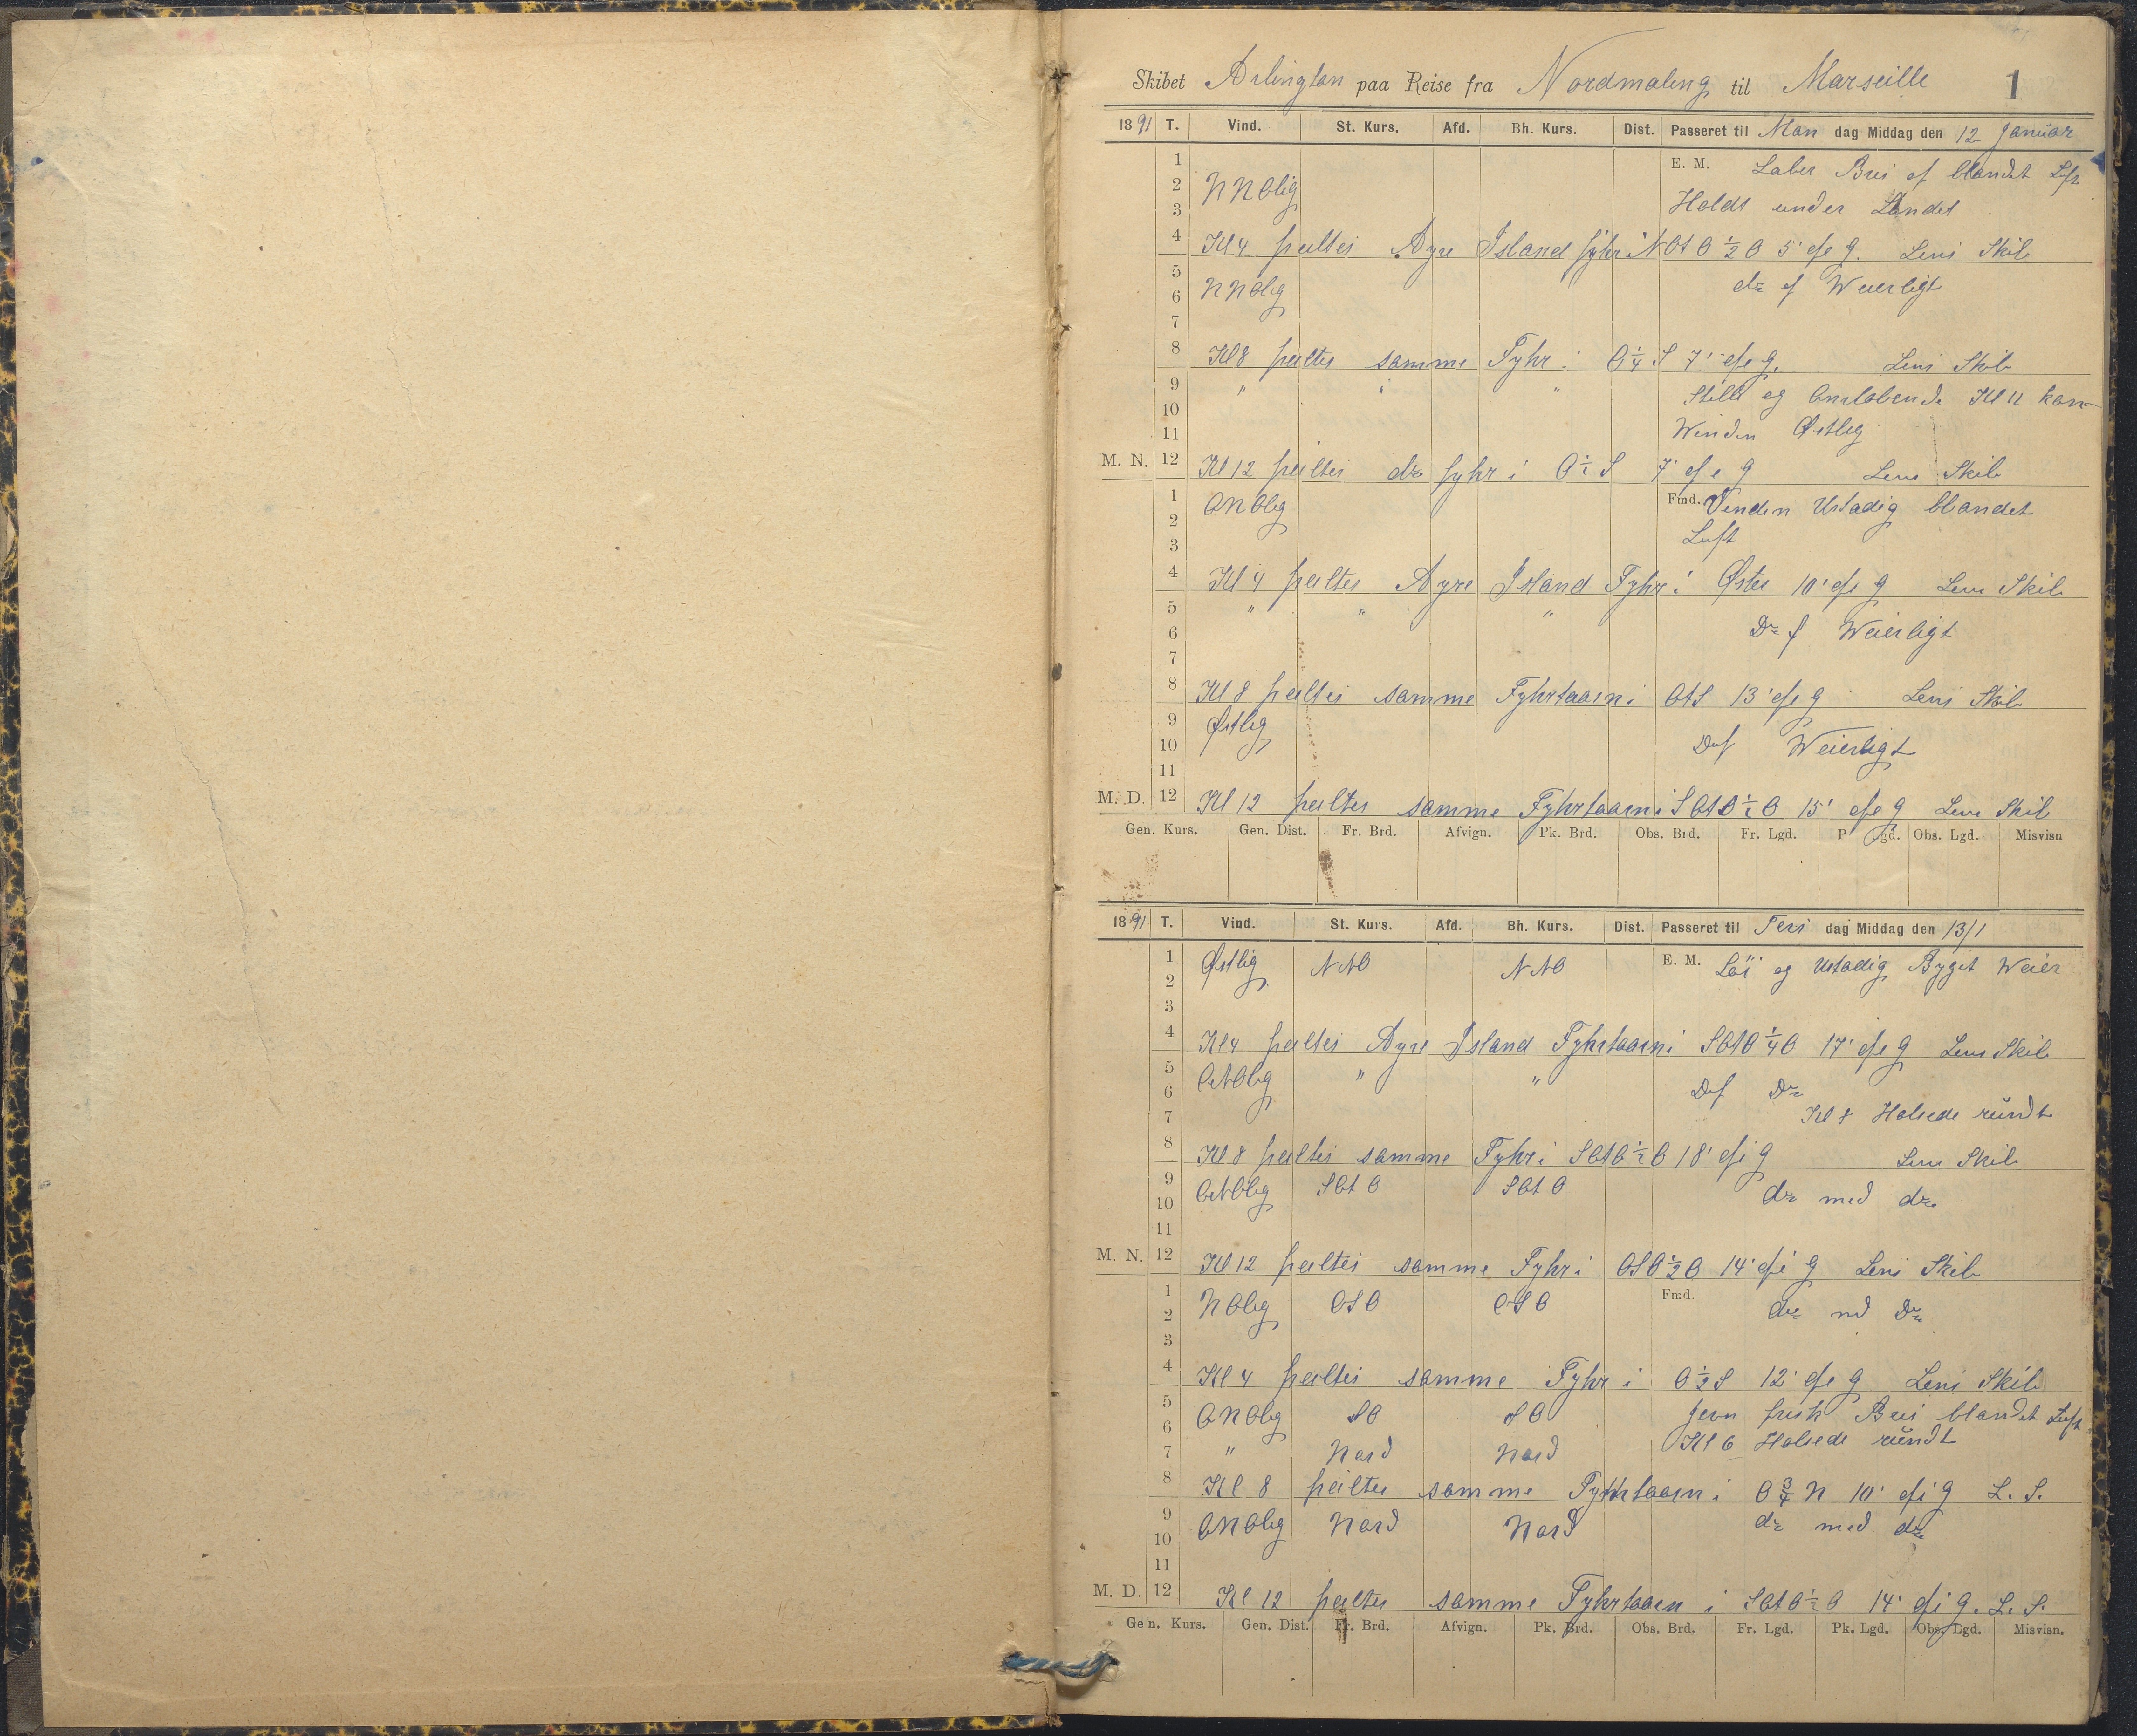 Skibet Arlington paa Reise fra Nordmaling til Marseille 1
1891 T. Vind. St. Kurs. Afd. Bh. Kurs. Dist. Passeret til Man dag Middag den 12 Januar
1 E. M. Laber Bris of blandet Luft
2 NNOlig
3 Holdt under Landet
4 Kl 4 peiltes Ayre Island fyhr i NOtO ½ O 5' efr g. Lens Skib
5
6 NNOlig do of Weierligt
7
8 Kl 8 peiltes samme Fyhr i O ¼ S 7' efr g. Lens Skib
9 " " " Stille og Kl 11 kom
10
11 Winden Østlig
M. N. 12 Kl 12 peiltes do fyhr i O ½ S 7' efr g Lens Skib
1 ONOlig Fmd. Vinden Ustadig blandet
2
3 Luft
4 Kl 4 peiltes Ayre Island Fyhr i Øster 10' efr g Lens Skib
5 " " "
6 Do of Weierligt
7
8 Kl 8 peiltes samme Fyhrtaarn i OtS 13' efr g Lens Skib
9 Østlig
10 Do of Weierligt
11
M. D. 12 Kl 12 peiltes samme Fyhrtaarn i SOtO ½ O 15' efr g Lens Skib
Gen. Kurs. Gen. Dist. Fr. Brd. Afvign. Pk. Brd. Obs. Brd. Fr. Lgd. P gd. Obs. Lgd. Misvisn
1891 T. Vind. St. Kurs. Afd. Bh. Kurs. Dist. Passeret til Tirs dag Middag den 13/1
1 Østlig NNO NNO E. M. Løi og Ustadig Byget Weier
2
3
4 Kl 4 peiltes Ayre Island Fyhrtaarn i SOtO ¼ O 17' efr g Lens Skib
5 ONOlig " " Do of Do
6
7 Kl 8 Halsede rundt
8 Kl 8 peiltes samme Fyhr i SOtO ½ O 18' efr g Lens Skib
9 ONOlig SOtO SOtO do med do
10
11
M. N. 12 Kl 12 peiltes samme Fyhr i OSO ½ O 14' efr g Lens Skib
1 NOlig OSO OSO Fmd. do md Do
2
3
4 Kl 4 peiltes samme Fyhr i O ½ S 12' efr g Lens Skib
5 ONOlig SO SO Jevn frisk Bris blandet Luft
6
7 " Nord Nord Kl 6 Halsede rundt
8 Kl 8 peiltes samme Fyhrtaarn i O ¾ N 10' efr g L. S.
9 ONOlig Nord Nord do med do
10
11
M. D. 12 Kl 12 peiltes samme Fyhrtaarn i SOtO ½ O 14' efr g. L. S.
Gen. Kurs. Gen. Dist. Fr. Brd. Afvign. Pk. Brd. Obs. Brd. Fr. Lgd. Pk. Lgd. Obs. Lgd. Misvisn.